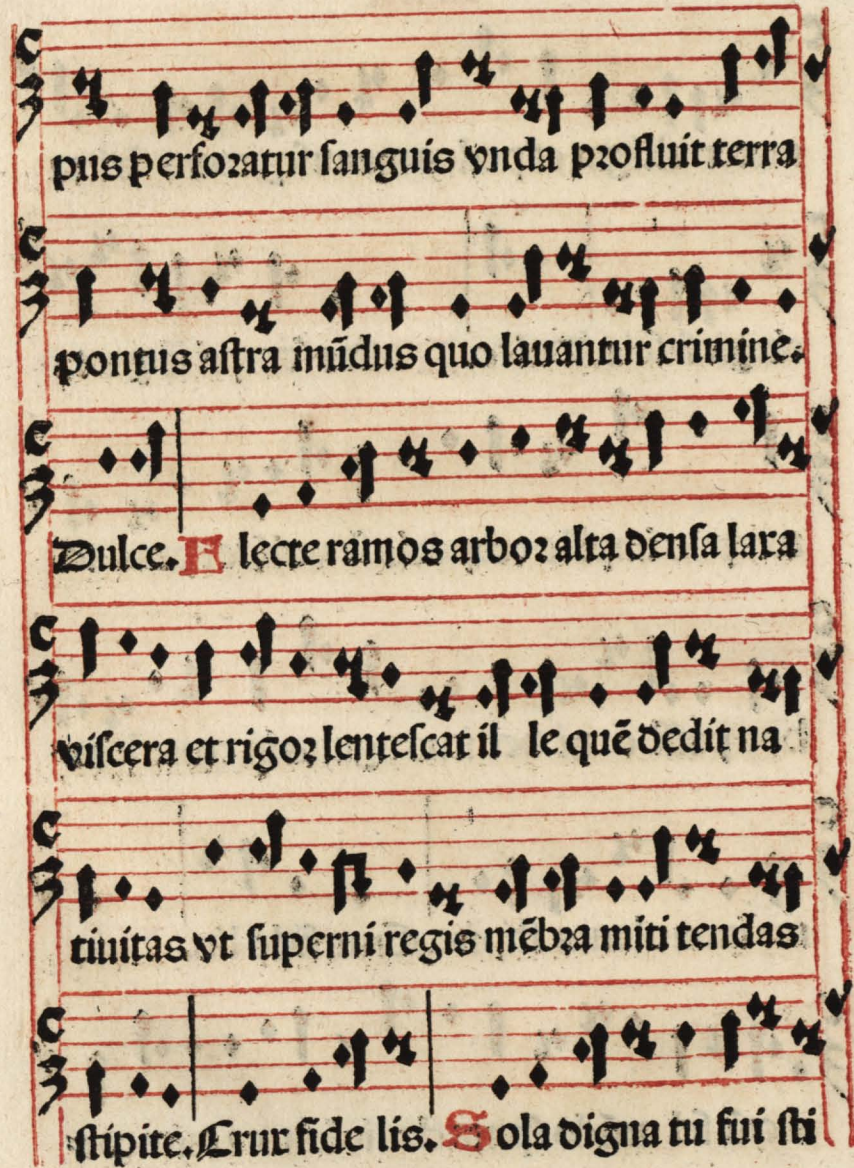 pus perforatur sanguis vnda profluit terra
pontus astra mūdus quo lauantur crimine.
Dulce. Electe ramos arbor alta densa laxa
viscera et rigor lentescat il le quē dedit na
tiuitas vt superni regis mēbra miti tendas
stipite. Crux fide lis. Sola digna tu fui sti